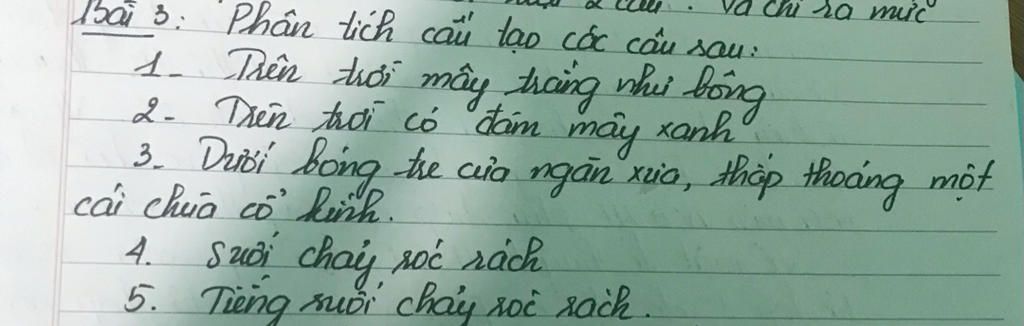 2 câu. Và chỉ ra mức
Bài 3: Phân tích cấu tạo các câu sau:
1- Trên trời mây trắng như bông
2- Trên trời có đám mây xanh
3- Dưới bóng tre của ngàn xưa, thấp thoáng một
cái chùa cổ kính.
4. Suối chảy róc rách
5. Tiếng suối chảy róc rách.